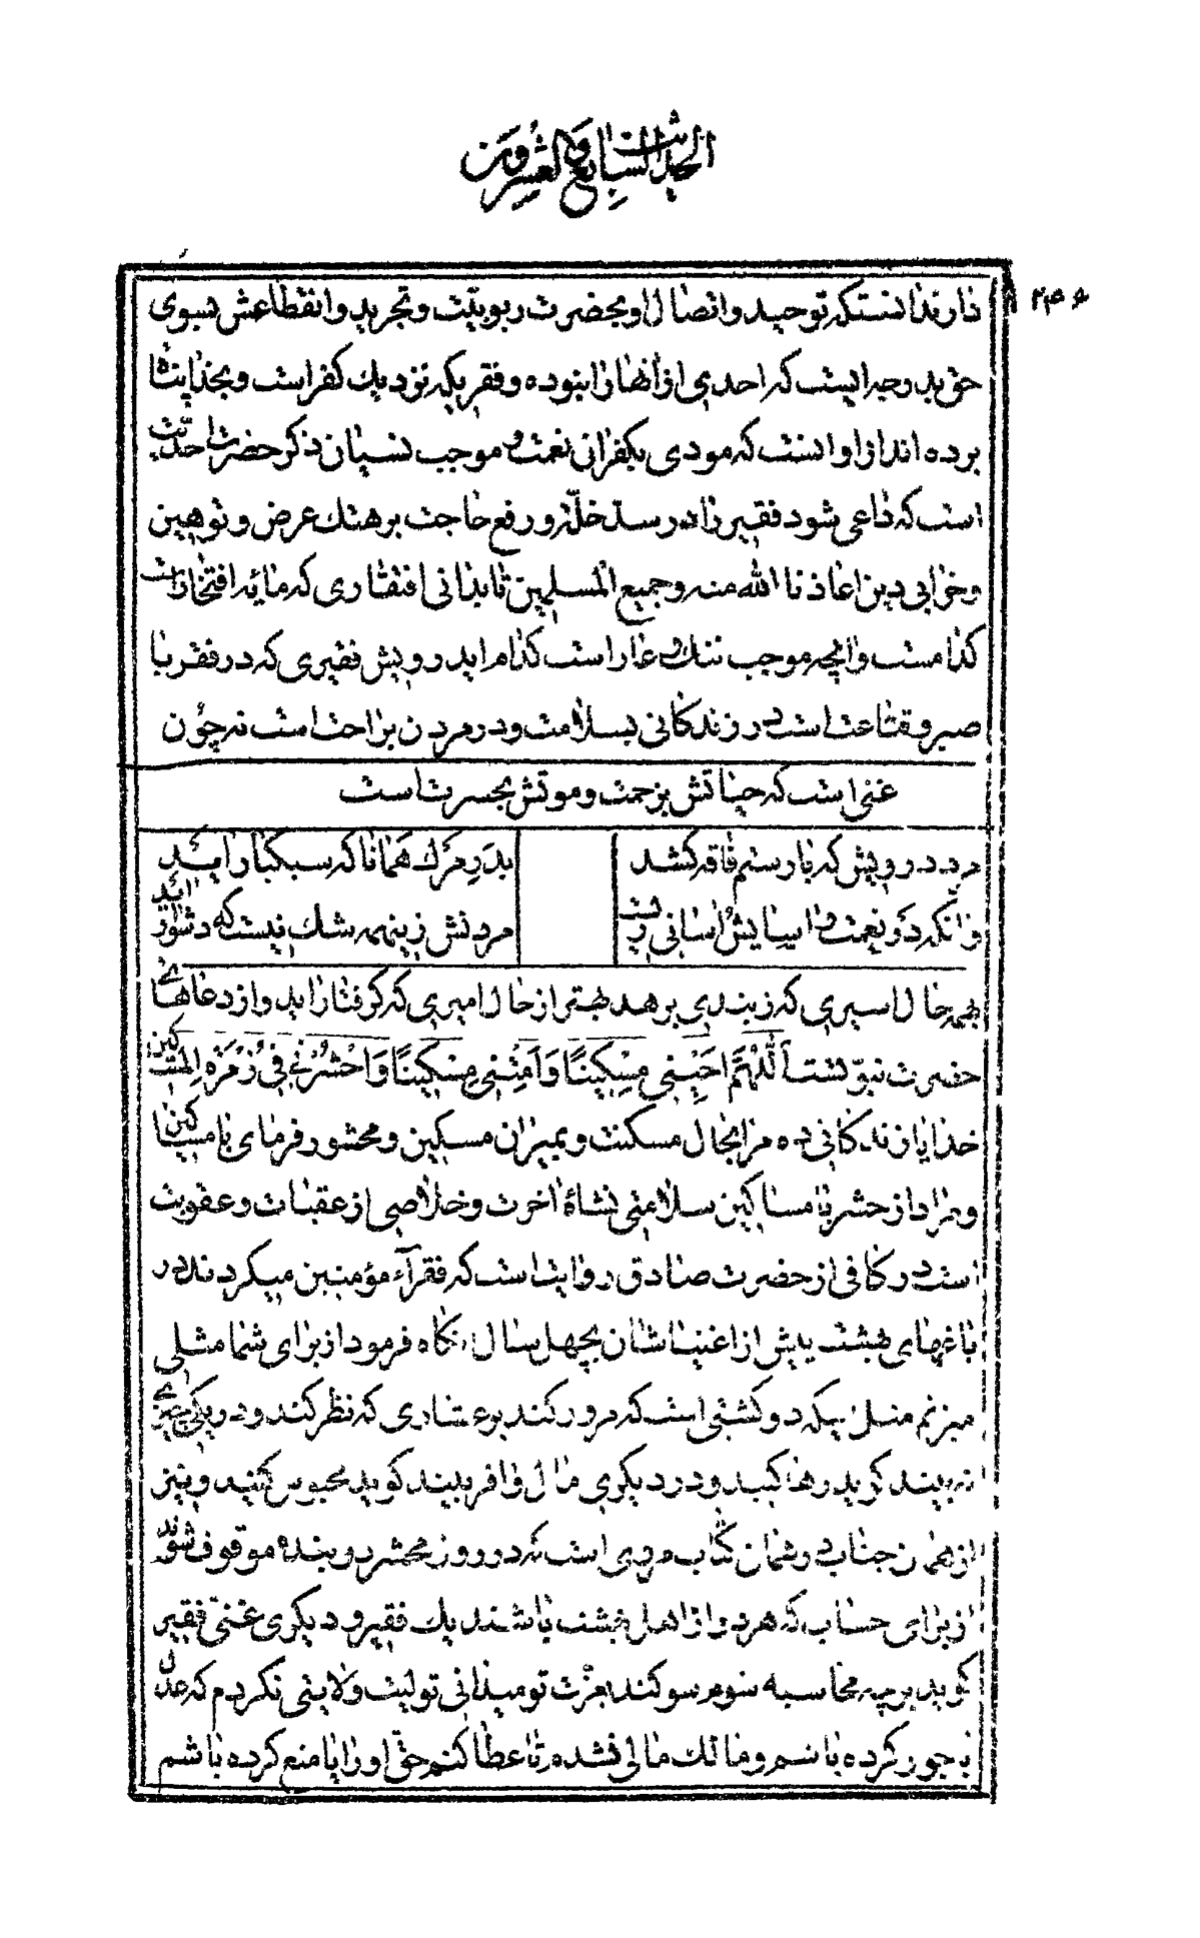 الحديث السابع والعشرون
۲۴۶
دارند آنستکه توحید و اتصال او بحضرت ربوبیّت و تجرید و انقطاعش بسوی
حق بدرجه ایست که احدی از آنها را نبوده و فقریکه نزدیك کفر است و بخدا پناه
برده اند از او آنست که مودی بکفرانی نعمت و موجب نسیان ذکر حضرت احدیّت
است که داعی شود فقیر را در سد خلّه و رفع حاجت بر هتك عرض و توهین
و خرابی دین اعاذنا الله منه و جمیع المسلمین تا بدانی افتقاری که مایه افتخار است
کدامست و آنچه موجب ننك و عار است کدام اید رویش فقیری که در فقر با
صبر و قناعت است در زندکانی بسلامت و در مردن براحت است نه چون
غنی است که حیاتش بزحمت و موتش بحسرت است
مرد درویش که بار ستم فاقه کشد
بدر مرك همانا که سبکبار آید
وانکه در نعمت و آسایش و آسانی زیست
مردنش زینهمه شك نیست که دشوار آید
بهمه حال اسیری که ز بندی برهد بهتر از حال امیری که گرفتار اید و از دعاهای
حضرت نبویّست اَللّٰهُمَّ اَحْیِنی مِسْکینًا وَاَمِتْنی مِسْکینًا وَاحْشُرْنی فی زُمْرَةِ الْمَسٰاکین
خدایا زندکانی ده مرا بحال مسکنت و بمیران مسکین و محشور فرمای با مساکین
و مراد از حشر با مساکین سلامتی نشاهٔ آخرت و خلاصی از عقبات و عقوبت
است در کافی از حضرت صادق روایت است که فقرآء مؤمنین میکردند در
باغهای بهشت پیش از اغنیاشان بچهل سال آنکاه فرمود از برای شما مثلی
میزنم مثل اینکه دو کشتی است که مرور کنند بر عشاری که نظر کند و در یکی چیزی
نه بیند کوید رها کنید و در دیکری مال وافر بیند کوید محبوس کنید و نیز
از همان جناب در همان کتاب مروی است که در روز محشر دو بنده موقوف شوند
از برای حساب که هر دو از اهل بهشت باشند یك فقیر و دیکری غنی فقیر
کوید بر چه محاسبه شوم سوکند بعزّت تو میدانی تولیت ولایتی نکردم که عدل
یا جور کرده باشم و مالك مالی نشدم تا عطا کنم حق او را یا منع کرده باشم